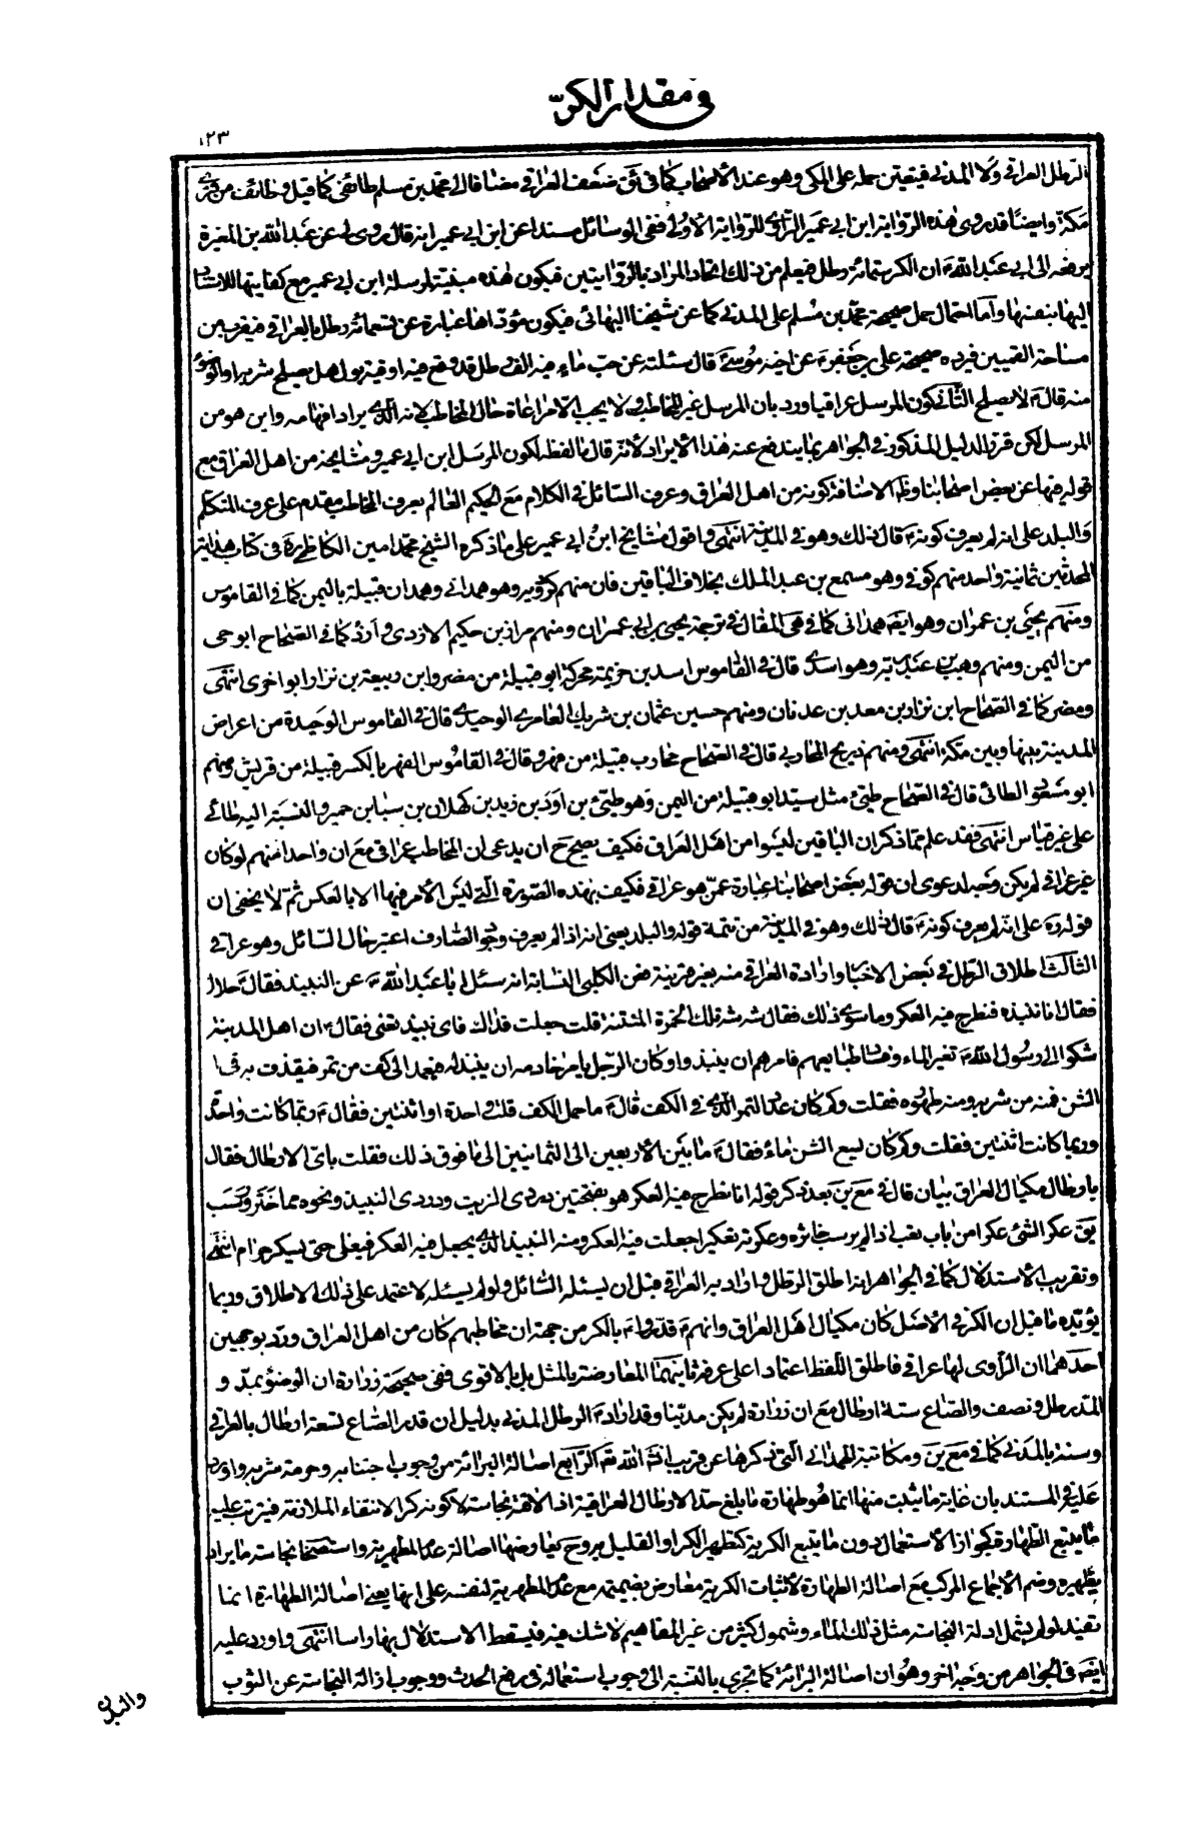 في مقدار الكرّ
١٢٣
الرطل العراقي ولا المدني فيتعين حمله على المكي وهو عند الأصحاب كما في ضعف العراقي مضافا الى محمد بن مسلم طائفي كما قيل وطائف من قرى
مكة وايضا قد روى هذه الرواية ابن ابي عمير الراوي للرواية الأولى ففي الوسائل مسندا عن ابن ابي عمير انه قال روى لي عن عبد الله بن المغيرة
يرفعه الى ابي عبد الله ع ان الكر ستمائة رطل فيعلم من ذلك اتحاد المراد بالروايتين فيكون هذه مبنية لمرسلة ابن ابي عمير مع كفايتها
اليها بنفسها وأما احتمال حمل صحيحة محمد بن مسلم على المدني كما عن شيخنا البهائي فيكون مؤداها عبارة عن تسعمائة رطل بالعراقي فيقرب من
مساحة القميين فيرده صحيحة علي بن جعفر ع عن اخيه موسى ع قال سئلته عن حب ماء فيه الف رطل قد وقع فيه اوقية بول هل يصلح شربه او الوضوء
منه قال ع لا يصلح الثاني كون المرسل عراقيا ورد بان المرسل غير المخاطب ولا يجب الا مراعاة حال المخاطب لانه الذي يراد افهامه واين هو من
المرسل لكن قرر الدليل المذكور في الجواهر بما يندفع عنه هذا الأيراد لأنه قال ما لفظه لكون المرسل ابن ابي عمير ومشايخه من اهل العراق مع
قوله فيها عن بعض اصحابنا وظ الاضافة كونه من اهل العراق وعرف السائل في الكلام مع الحكيم العالم بعرف المخاطب مقدم على عرف المتكلم
والبلد على انه لم يعرف كونه ع قال ذلك وهو في المدينة انتهى واقول مشايخ ابن ابي عمير على ما ذكره الشيخ محمد امين الكاظمي ره في كتاب هداية
المحدثين ثمانية واحد منهم كوفي وهو مسمع بن عبد الملك بخلاف الباقين فان منهم كردويه وهو همداني وهمدان قبيلة باليمن كما في القاموس
ومنهم يحيى بن عمران وهو ايضا همداني كما في المقال في ترجمة يحيى بن ابي عمران ومنهم مرازم بن حكيم الازدي وأزد كما في الصحاح ابو حي
من اليمن ومنهم وهيب بن عبد ربه وهو اسدي قال في القاموس اسد بن خزيمة محركة ابو قبيلة من مضر وابن ربيعة بن نزار ابو اخرى انتهى
ومضر كما في الصحاح ابن نزار بن معد بن عدنان ومنهم حسين بن عثمان بن شريك العامري الوحيدي قال في القاموس الوحيدة من اعراض
المدينة بينها وبين مكة انتهى ومنهم ذريح المحاربي قال في الصحاح محارب قبيلة من فهر وقال في القاموس الفهر بالكسر قبيلة من قريش ومنهم
ابو مسعود الطائي قال في الصحاح طيئ مثل سيد ابو قبيلة من اليمن وهو طيئ بن أدد بن زيد بن كهلان بن سبا بن حمير والنسبة اليه طائي
على غير قياس انتهى فقد علم مما ذكر ان الباقين ليسوا من اهل العراق فكيف يصح ح ان يدعى ان المخاطب عراقي مع ان واحدا منهم لو كان
غير عراقي لم يكن وجه لدعوى ان قوله بعض اصحابنا عبارة عمن هو عراقي فكيف بهذه الصورة التي ليس الأمر فيها الا بالعكس ثم لا يخفى ان
قوله ره على انه لم يعرف كونه ع قال ذلك وهو في المدينة من تتمة قوله والبلد يعني انه اذا لم يعرف وجود الصارف اعتبر حال السائل وهو عراقي
الثالث اطلاق الرطل في بعض الاخبار وارادة العراقي منه بغير قرينة فعن الكلبي النسابة انه سئل ابا عبد الله ع عن النبيذ فقال ع حلال
فقال انا ننبذه فنطرح فيه العكر وما سوى ذلك فقال شه شه تلك الخمرة المنتنة قلت جعلت فداك فاي نبيذ تعني فقال ع ان اهل المدينة
شكوا الى رسول الله ص تغير الماء وفساد طبايعهم فامرهم ان ينبذوا وكان الرجل يامر خادمه ان ينبذ له فيعمد الى كف من تمر فيقذف به في
الشن فمنه شربه ومنه طهوره فقلت وكم كان عدد التمر الذي في الكف قال ع ما حمل الكف قلت واحدة او اثنتين فقال ع ربما كانت واحدة
وربما كانت اثنتين فقلت وكم كان يسع الشن ماء فقال ع ما بين الأربعين الى الثمانين الى ما فوق ذلك فقلت باي الارطال فقال
بارطال مكيال العراق بيان قال في مع ين بعد ذكر قوله انا نطرح فيه العكر هو بفتحتين دردي الزيت ودردي النبيذ ونحوه مما خثر ورسب
يق عكر الشيء عكرا من باب تعب اذا لم يرسب خاثره وعكرته تعكيرا جعلت فيه العكر ومنه النبيذ الذي يجعل فيه العكر فيغلي حتى يسكر حرام انتهى
وتقريب الأستدلال كما في الجواهر انه اطلق الرطل واراد به العراقي قبل ان يسئله السائل ولو لم يسئله لاعتمد على ذلك الاطلاق وربما
يؤيده ما قيل ان الكر في الأصل كان مكيال اهل العراق وانهم ع قدروا بالكر من جهة ان مخاطبهم كان من اهل العراق ورد بوجهين
احدهما ان الراوي لها عراقي فاطلق اللفظ اعتمادا على عرفه ثانيهما المعارضة بالمثل بل بالاقوى ففي صحيحة زرارة ان الوضوء بمد و
المد رطل ونصف والصاع ستة ارطال مع ان زرارة لم يكن مدنيا وقد اراد ع الرطل المدني بدليل ان قدر الصاع تسعة ارطال بالعراقي
وستة بالمدني كما في مع ين ومكاتبة الهمداني التي نذكرها عن قريب انشاء الله تعالى الرابع اصالة البرائة من وجوب اجتنابه وحرمة شربه واورد
عليه في المستند بان غاية ما يثبت منها انما هو طهارة ما بلغ حد الارطال العراقية اذ لا نجاسته لا كونه كرا لانتفاء الملازمة فيترتب عليه
ما يتبع الطهارة كجواز الأستعمال دون ما يتبع الكرية كتطهير الكر او القليل به وح يعارضها اصالة عدم المطهرية واستصحاب نجاسة ما يراد
تطهيره وضم الأجماع المركب مع اصالة الطهارة لأثبات الكرية معارض بضميمته مع عدم المطهرية لنفسه على انها يعني اصالة الطهارة انما
تفيد لو لم يشمل ادلة النجاسة مثل ذلك الماء وشمول كثير من غير المفاهيم لا شك فيه فيسقط الاستدلال بها راسا انتهى واورد عليه
ايضا في الجواهر من وجه اخر وهو ان اصالة البرائة كما تجري بالنسبة الى وجوب استعماله في رفع الحدث ووجوب ازالة النجاسة عن الثوب
والبدن